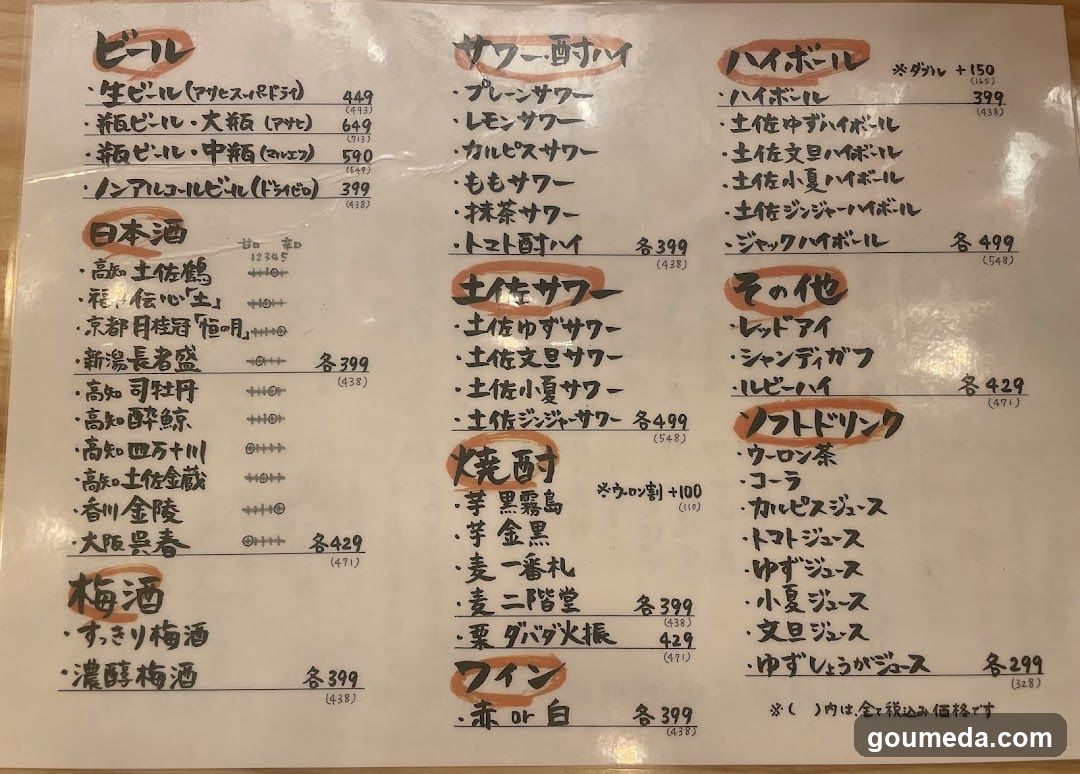 ビール
・生ビール(アサヒスーパードライ) 449
(493)
・瓶ビール・大瓶 (アサヒ) 649
(713)
・瓶ビール・中瓶(マルエフ) 590
(649)
・ノンアルコールビール(ドライゼロ) 399
(438)
日本酒
甘口 辛口
12345
・高知 土佐鶴
伝心「土」
・京都 月桂冠「恒の月」
・新潟 長者盛 各399
(438)
・高知 司牡丹
・高知 酔鯨
・高知 四万十川
・高知 土佐金蔵
・香川 金陵
・大阪 呉春 各429
(471)
梅酒
・すっきり梅酒
・濃醇梅酒 各399
(438)
サワー・酎ハイ
・プレーンサワー
・レモンサワー
・カルピスサワー
・ももサワー
・抹茶サワー
・トマト酎ハイ 各399
(438)
土佐サワー
・土佐ゆずサワー
・土佐文旦サワー
・土佐小夏サワー
・土佐ジンジャーサワー 各499
(548)
焼酎
※ウーロン割 +100
(110)
・芋 黒霧島
・芋 金黒
・麦 一番札
・麦 二階堂 各399
(438)
・栗 ダバダ火振 429
(471)
ワイン
・赤 or 白 各399
(438)
ハイボール ※ダブル +150
(165)
・ハイボール 399
(438)
・土佐ゆずハイボール
・土佐文旦ハイボール
・土佐小夏ハイボール
・土佐ジンジャーハイボール
・ジャックハイボール 各499
(548)
その他
・レッドアイ
・シャンディガフ
・ルビーハイ 各429
(471)
ソフトドリンク
・ウーロン茶
・コーラ
・カルピスジュース
・トマトジュース
・ゆずジュース
・小夏ジュース
・文旦ジュース
・ゆずしょうがジュース 各299
(328)
※( )内は、全て税込み価格です
goumeda.com